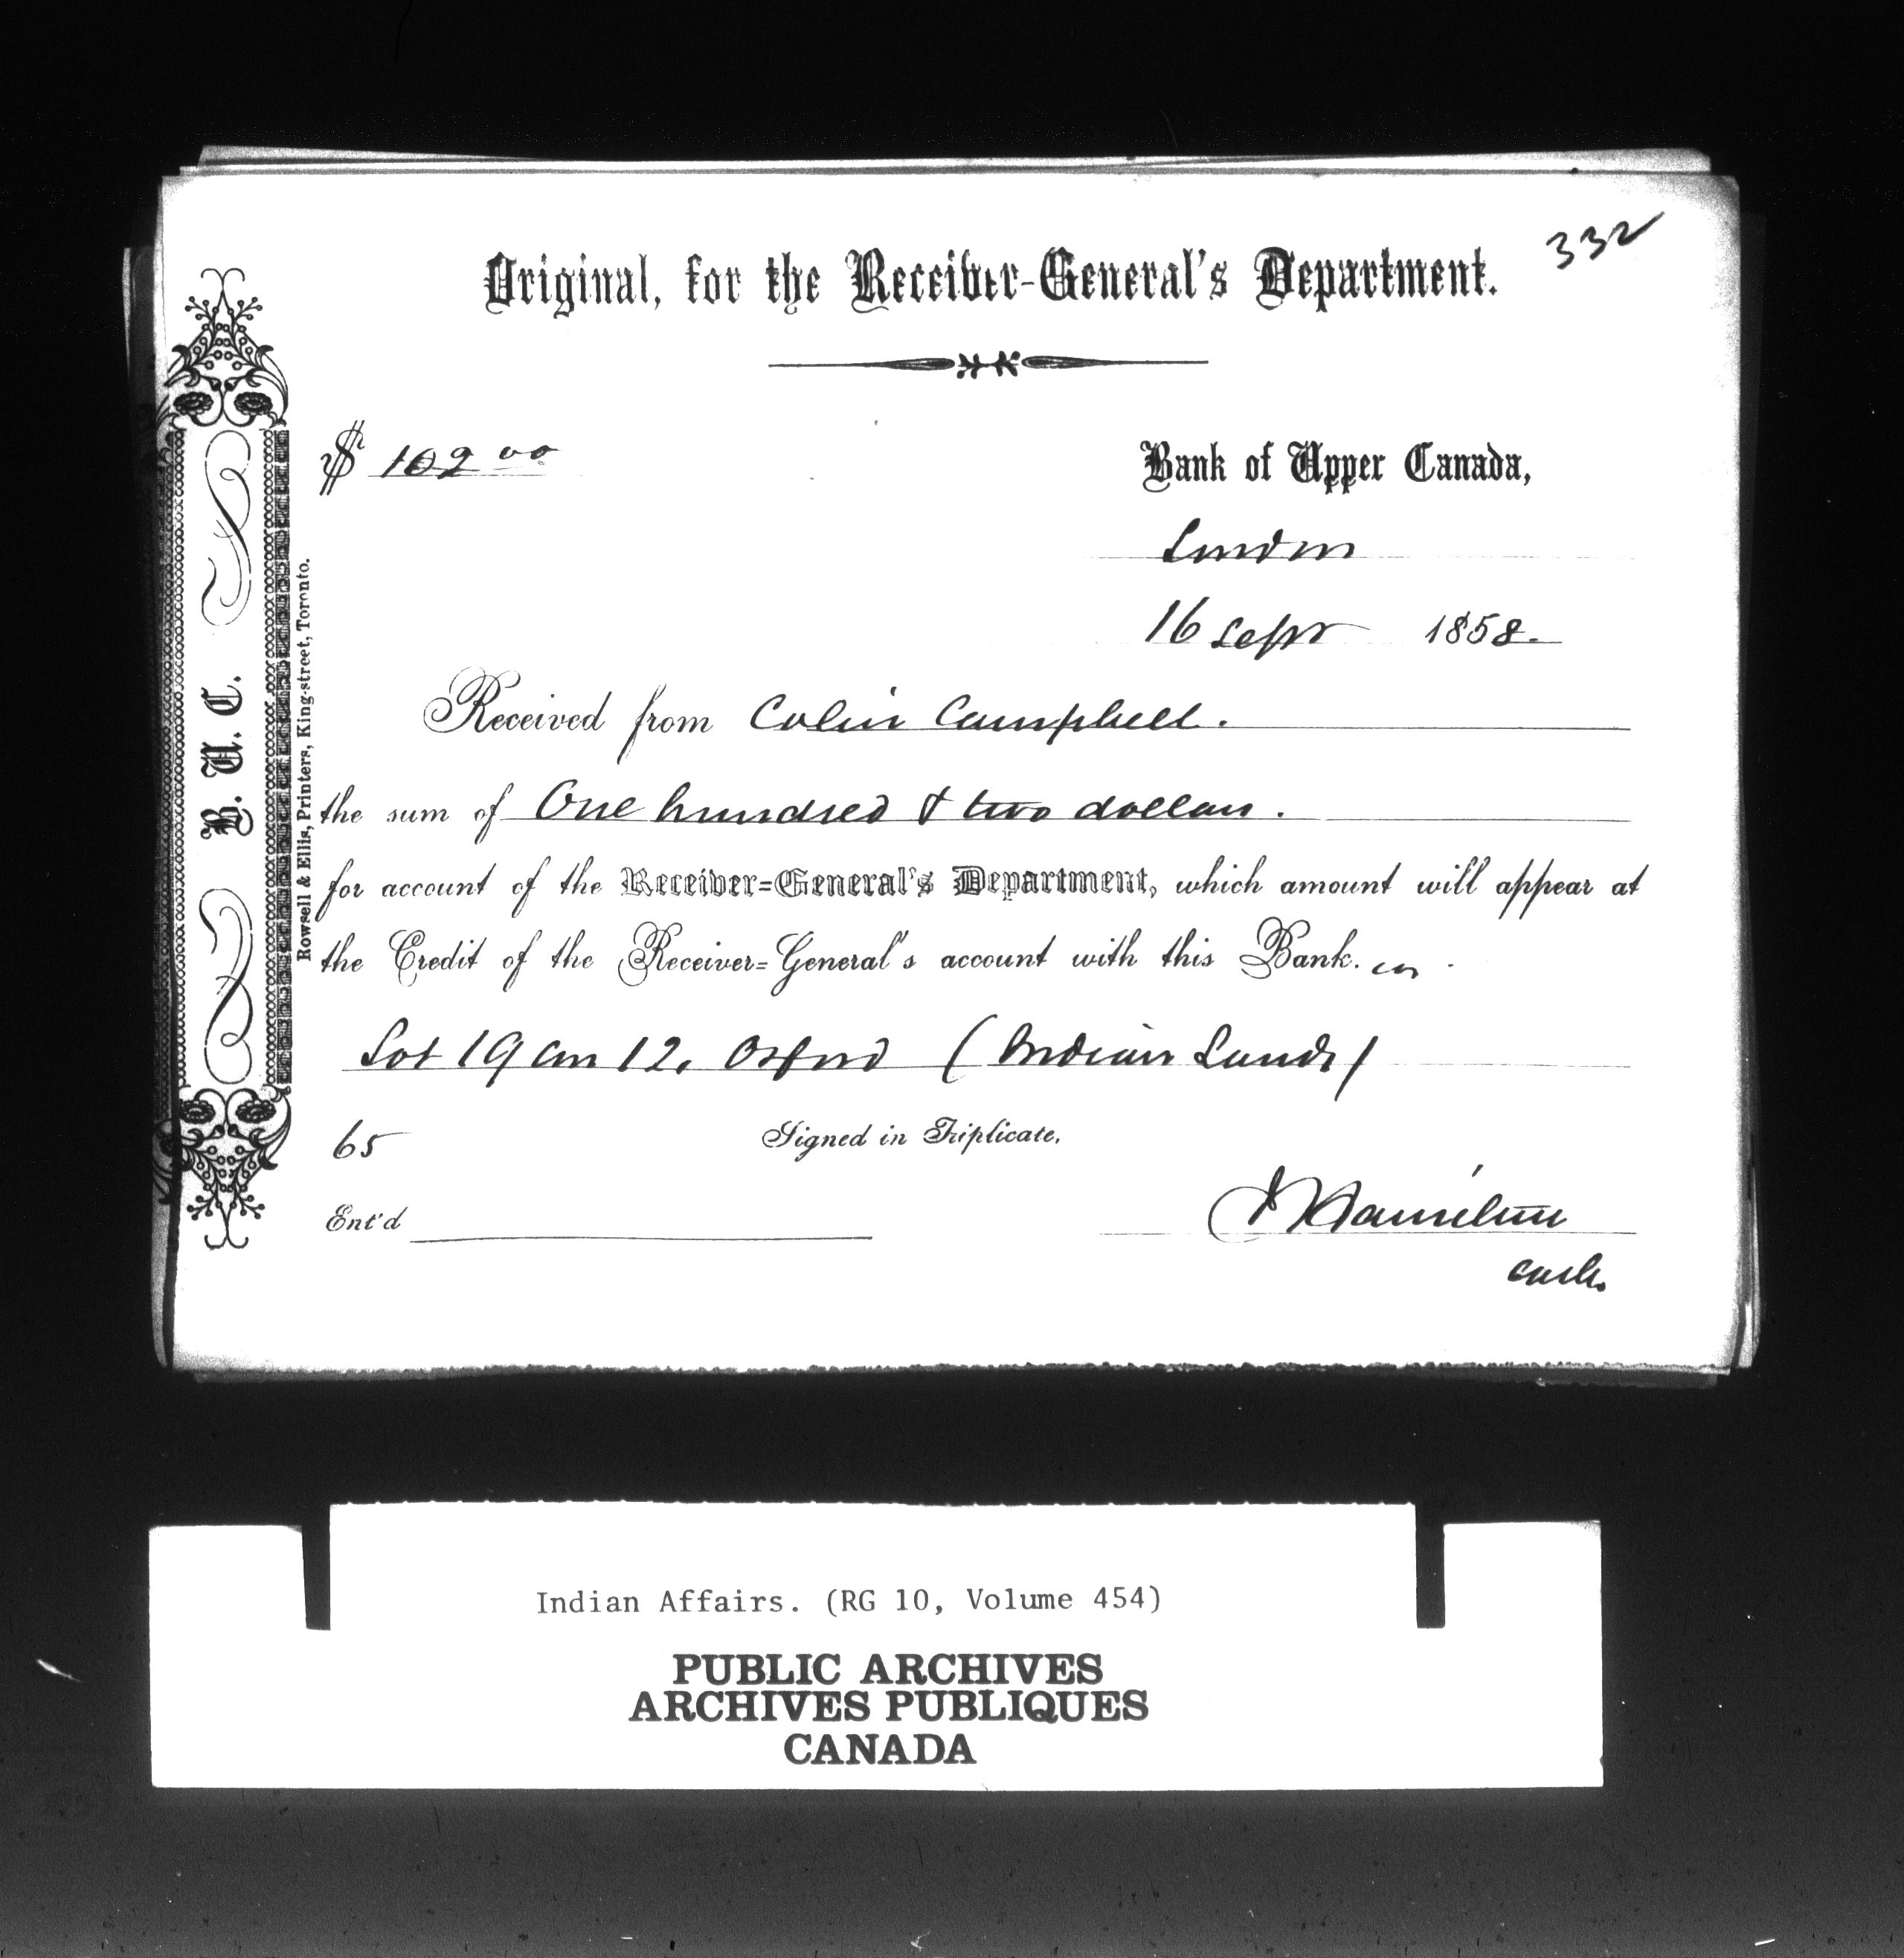 332
Original, for the Receiver-General's Department.
$ 102 00
Bank of Upper Canada,
London
16 Sept 1858.
Received from Colin Campbell.
the sum of One hundred & two dollars.
for account of the Receiver-General's Department, which amount will appear at
the Credit of the Receiver-General's account with this Bank. on
Lot 19 Con 12, Oxford (Indian Lands)
65
Signed in Triplicate,
Ent'd
Hamilton
Cash.
B. U. C.
Rowsell & Ellis, Printers, King-street, Toronto.
Indian Affairs. (RG 10, Volume 454)
PUBLIC ARCHIVES
ARCHIVES PUBLIQUES
CANADA